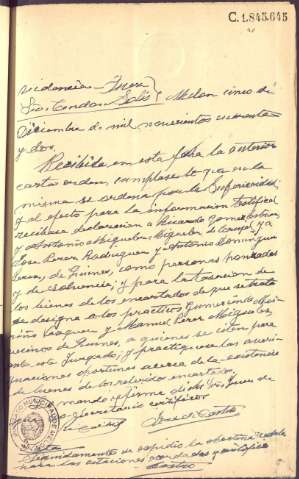 C.1.845.645
Providencia Juez
Sr. Condor Solis Melon cinco de
Diciembre de mil novecientos cuarenta
y dos.
Recibida en esta fecha la anterior
carta orden, cumplase lo que en la
misma se ordena por la Superioridad;
y al efecto para la informacion testifical
recibase declaracion a Ricardo Gomez
y Antonio Miguelez
Jose Perez Rodriguez y Antonio Dominguez
Perez, de Quines, como personas honradas
y de solvencia; y para la tasacion de
los bienes de los encartados de que se trata
se designa a los practicos Gumersindo
Vazquez y Manuel Perez Miguelez,
vecinos de Quines, a quienes se citen para
ante este Juzgado; y practiquense las averi-
guaciones oportunas acerca de la existencia
de bienes de los referidos encartados.
Lo mando y firma dicho Sr. Juez de
que yo Secretario certifico.
Jose Castro
Nota
Seguidamente se expidio la
para las citaciones acordadas y certifico
Castro